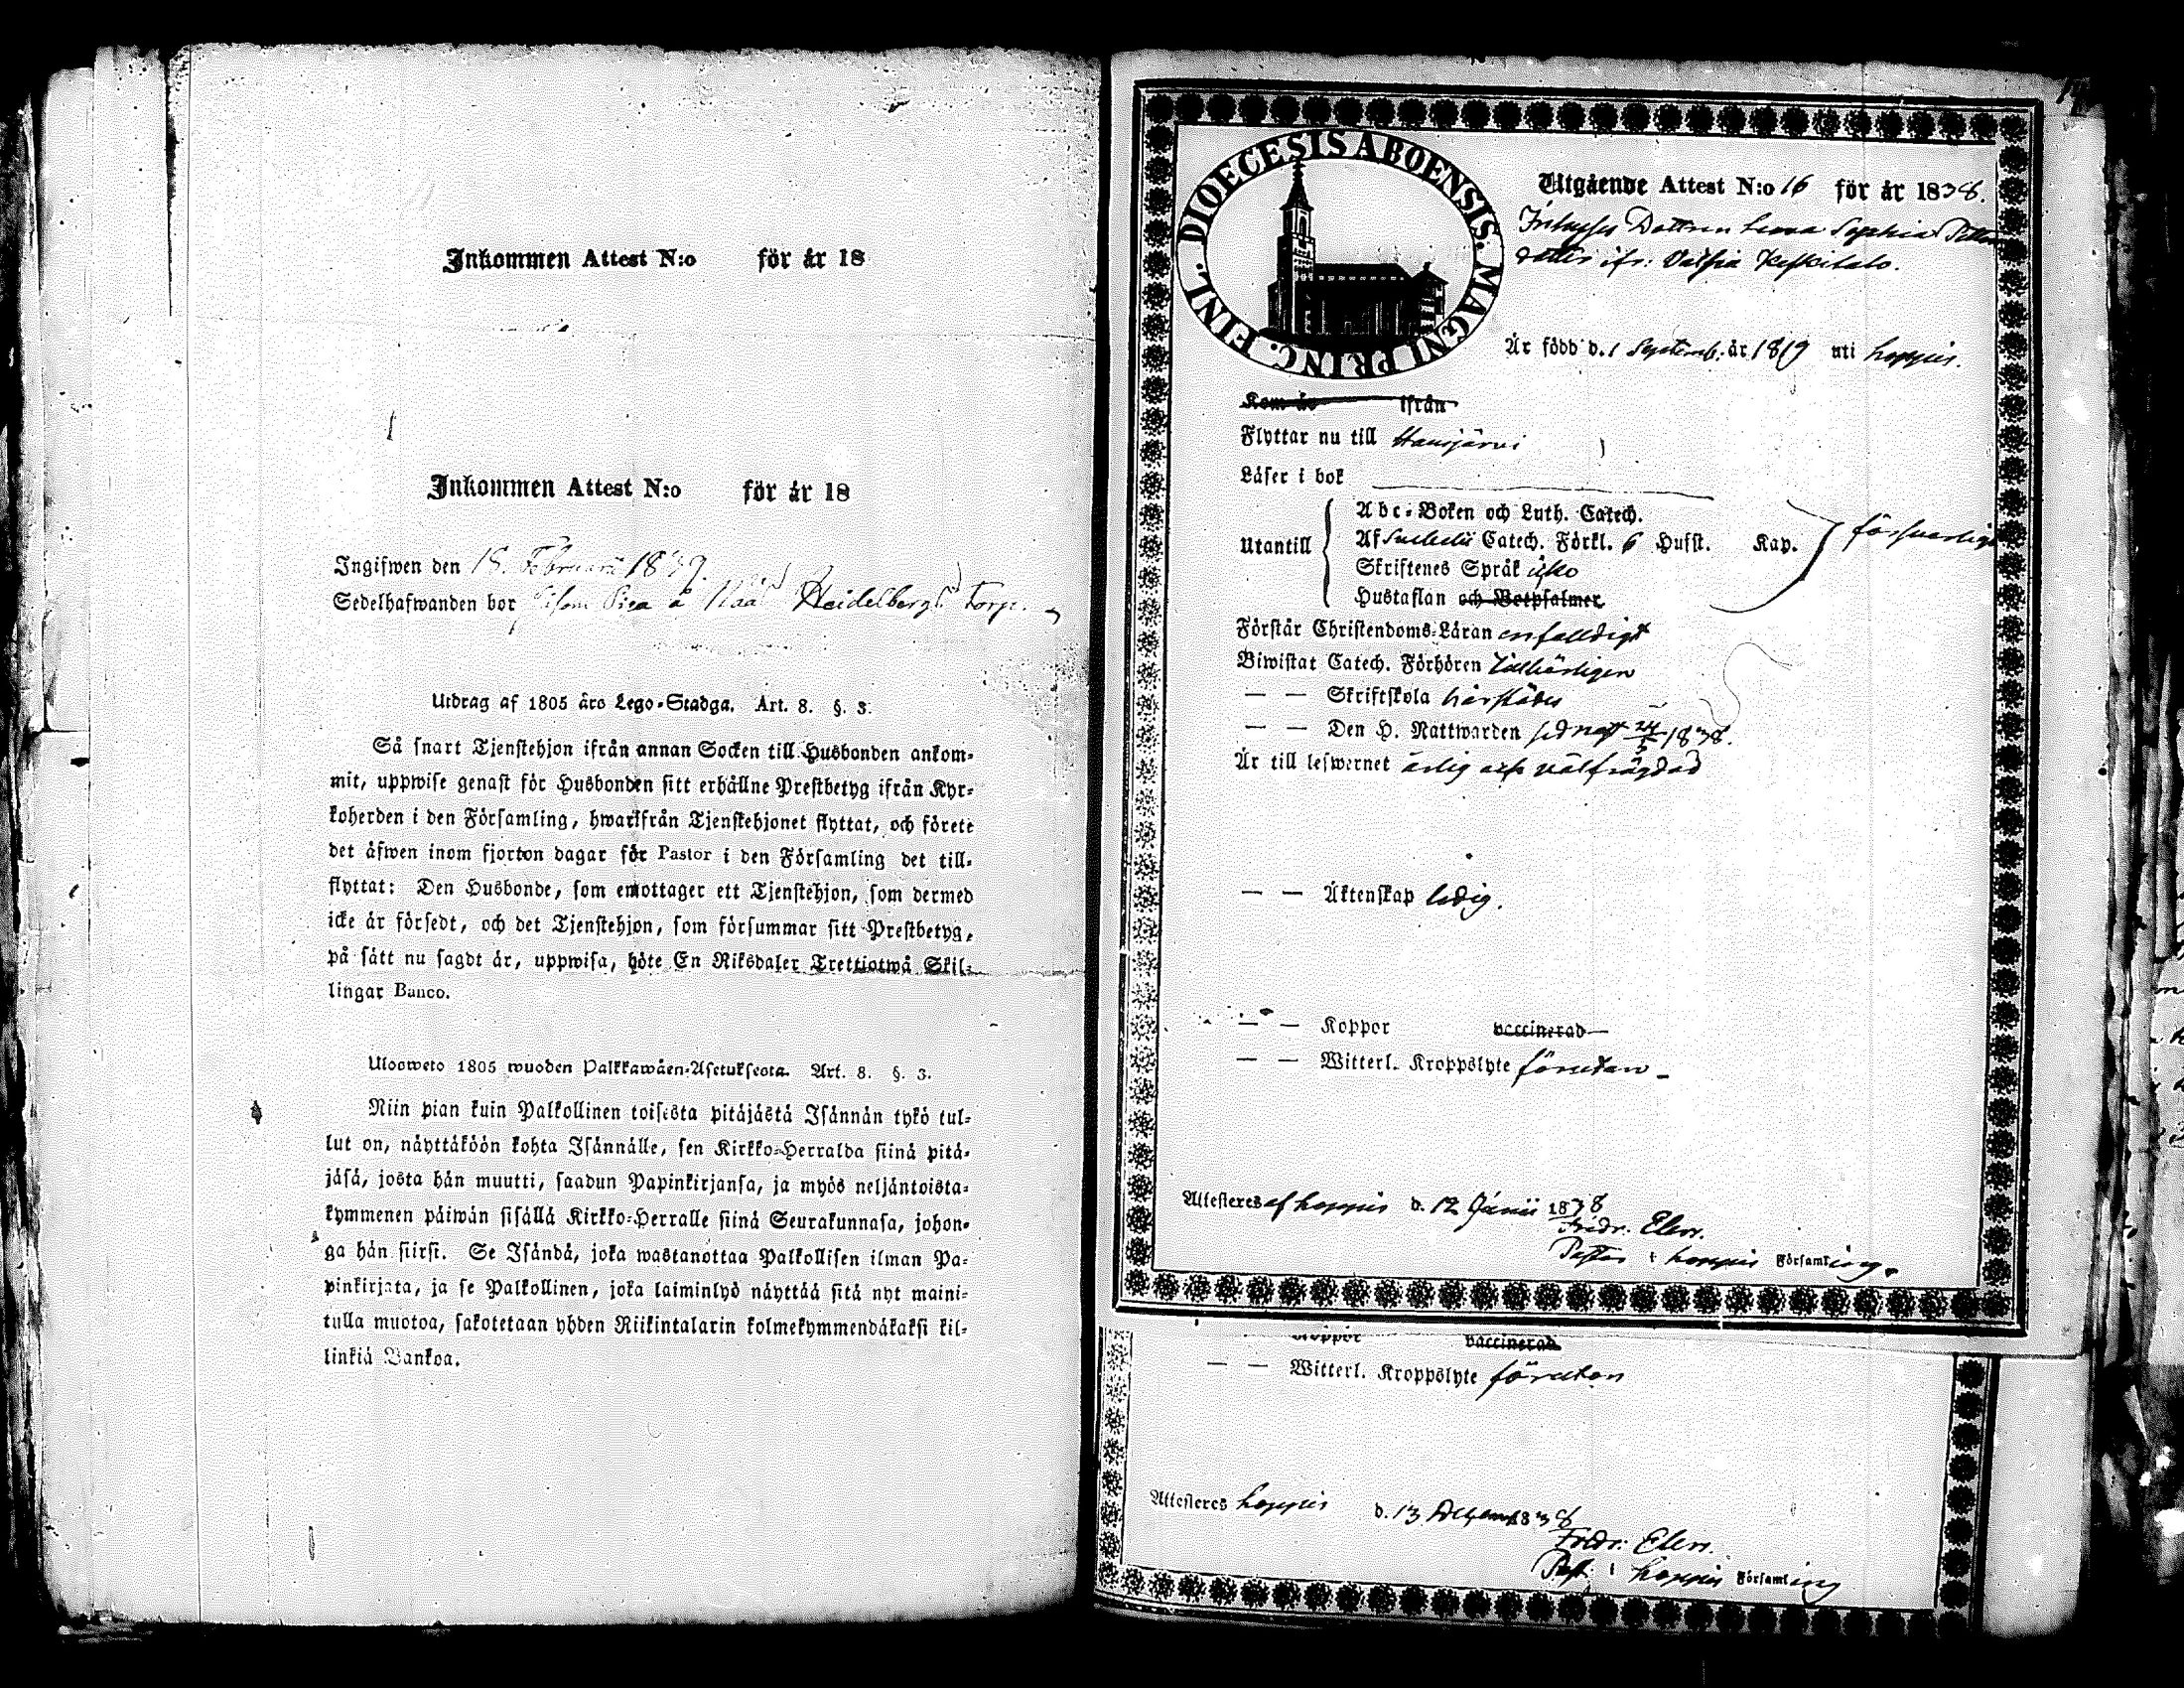 Inkommen Attest N:o för år 18
Inkommen Attest N:o för år 18
Ingifwen den 18. Februarii 1839.
Sedelhafwanden bor såsom Piga å Heidelbergs Torp.
Utdrag af 1805 års Lego-Stadga. Art. 8. §. 3.
Så snart Tjenstehjon ifrån annan Socken till Husbonden ankom-
mit, uppwise genast för Husbonden sitt erhållne Prestbetyg ifrån Kyr-
koherden i den Församling, hwarifrån Tjenstehjonet flyttat, och förete
det åfwen inom fjorton dagar för Pastor i den Församling det till-
flyttat: Den Husbonde, som emottager ett Tjenstehjon, som dermed
icke är försedt, och det Tjenstehjon, som försummar sitt Prestbetyg,
på sätt nu sagdt är, uppwisa, böte En Riksdaler Trettiotwå Skil-
lingar Banco.
Uloosweto 1805 wuoden Palkkawäen-Asetuksesta. Art. 8. §. 3.
Niin pian kuin Palkollinen toisesta pitäjästä Isännän tykö tul-
lut on, näyttäköön kohta Isännälle, sen Kirkko-Herralda siinä pitä-
jäsä, josta hän muutti, saadun Papinkirjansa, ja myös neljäntoista-
kymmenen päiwän sisällä Kirkko-Herralle siinä Seurakunnasa, johon-
ga hän siirsi. Se Isändä, joka wastanottaa Palkollisen ilman Pa-
pinkirjata, ja se Palkollinen, joka laiminlyö näyttää sitä nyt maini-
tulla muotoa, sakotetaan yhden Riikintalarin kolmekymmendäkaksi kil-
linkiä Bankoa.
DIOECESIS ABOENSIS. MAGNI PRINC. FINL.
Utgående Attest N:o 16 för år 1838.
Inhyses Dottren Lovisa Sophia Petters
dotter ifr: Keskitalo.
År född d. 1 Septemb. år 1819 uti Loppis.
Kom år ifrån
Flyttar nu till Hausjärvi
Läser i bok
Utantill
Abc-Boken och Luth. Catech.
Af Svebelii Catech. Förkl. 6 Hufst. Kap. försvarligt
Skriftenes Språk
Hustaflan och Botpsalmer
Förstår Christendoms-Läran enfalldigt
Biwistat Catech. Förhören
— — Skriftskola härstädes
— — Den H. Nattwarden sednast 24/5 1838.
Är till lefwernet ärlig och välfrägdad
— — Äktenskap ledig.
— — Koppor vaccinerad
— — Witterl. Kroppslyte förutan
Attesteres af Loppis d. 12 Junii 1838
Fridr. Elers.
Pastor i Loppis Församling.
Koppor vaccinerad
— — Witterl. Kroppslyte förutan
Attesteres Loppis d. 13 1838
Fridr. Elers.
Past. i Loppis Församling